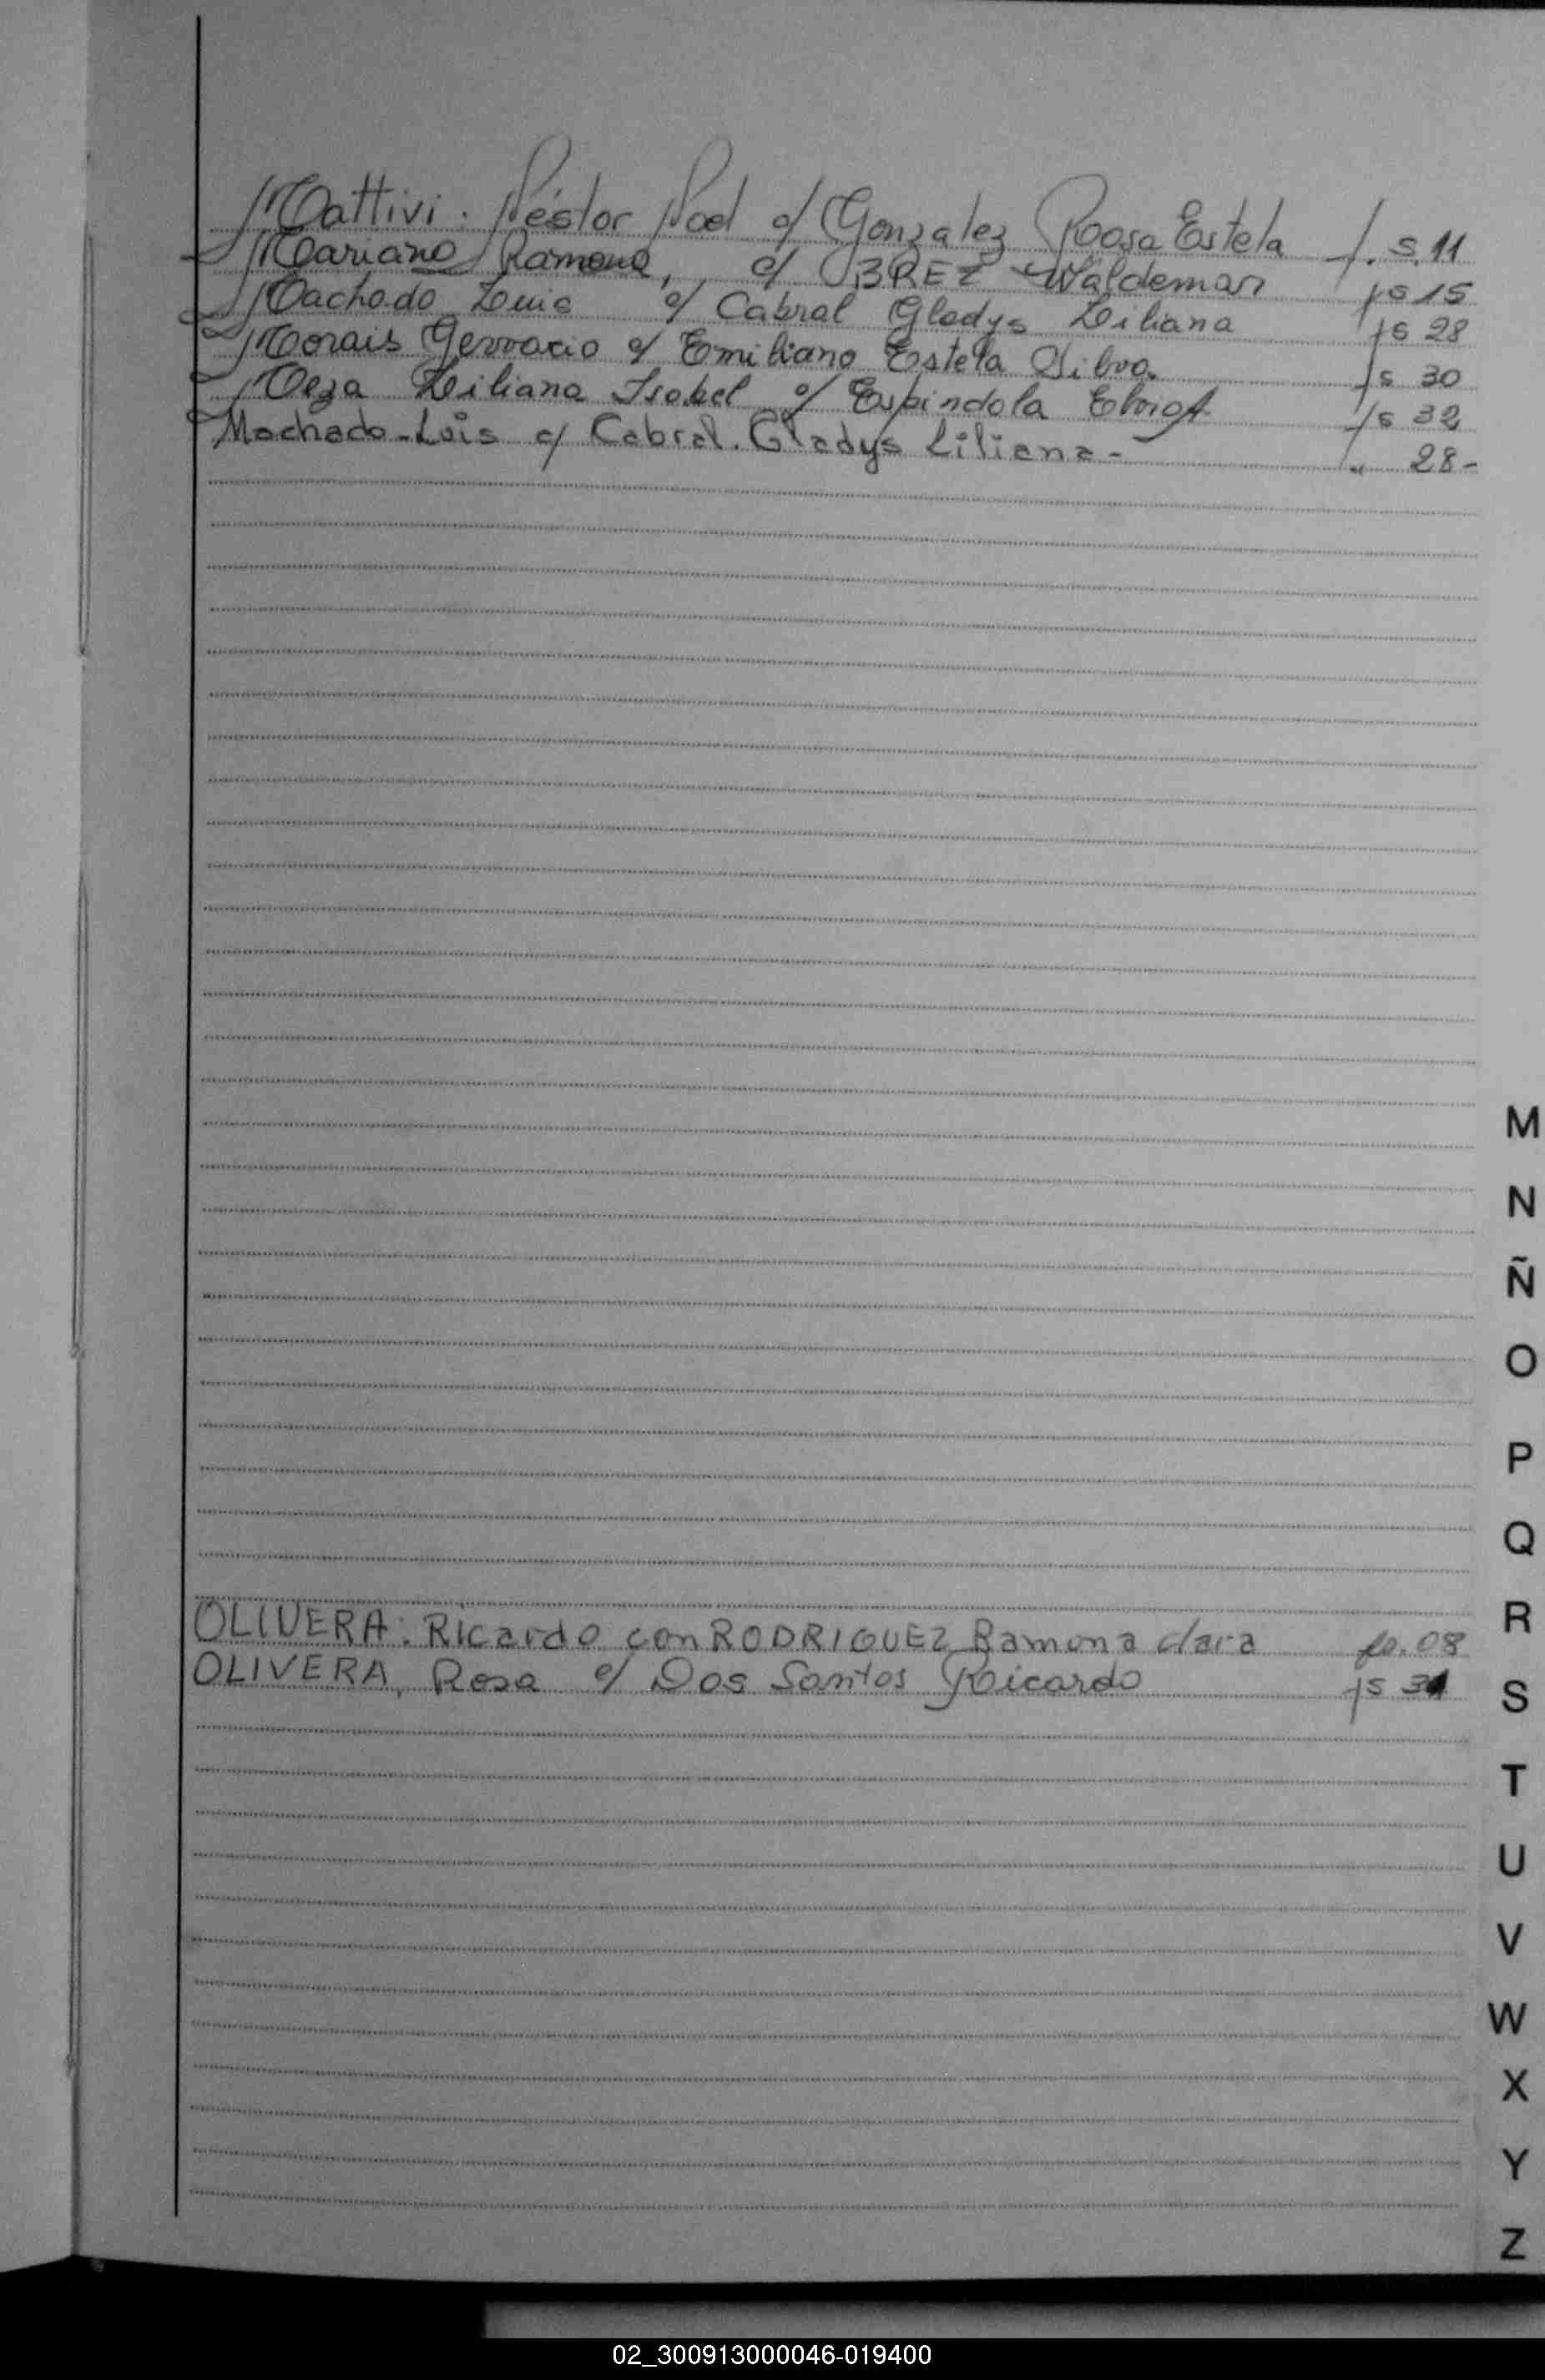 Mattivi. Néstor Noel c/ Gonzalez Rosa Estela f. s. 11
Mariano Ramona, c/ BREZ Waldemar fs 15
Machado Luis c/ Cabral Gladys Liliana fs 28
Morais Gervacio c/ Emiliano Estela Silva. fs 30
Meza Liliana Isabel c/ Espindola fs 32
Machado-Luis c/ Cabral. Gladys Liliana- " 28-
OLIVERA: Ricardo con RODRIGUEZ Ramona clara fo. 08
OLIVERA, Rosa c/ Dos Santos Ricardo fs 31
M
N
Ñ
O
P
Q
R
S
T
U
V
W
X
Y
Z
02_300913000046-019400